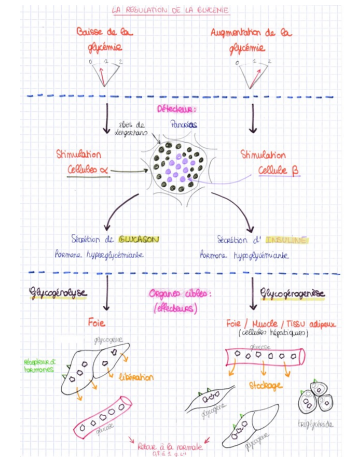 LA RÉGULATION DE LA GLYCÉMIE
Baisse de la
glycémie
Augmentation de la
glycémie
0 1 2
0 1 2
Détecteur :
îlots de
Langerhans
Pancréas
Stimulation
Cellules α
Stimulation
Cellule β
Sécrétion de GLUCAGON
hormone hyperglycémiante
Sécrétion d' INSULINE
hormone hypoglycémiante
Glycogénolyse
Organes cibles :
(effecteurs)
Glycogénogenèse
Foie
Foie / Muscle / Tissu adipeux
(cellules hépatiques)
glycogène
glucose
Récepteur d'
hormones
Libération
Stockage
glycogène
glucose
glycogène
triglycéride
Retour à la normale